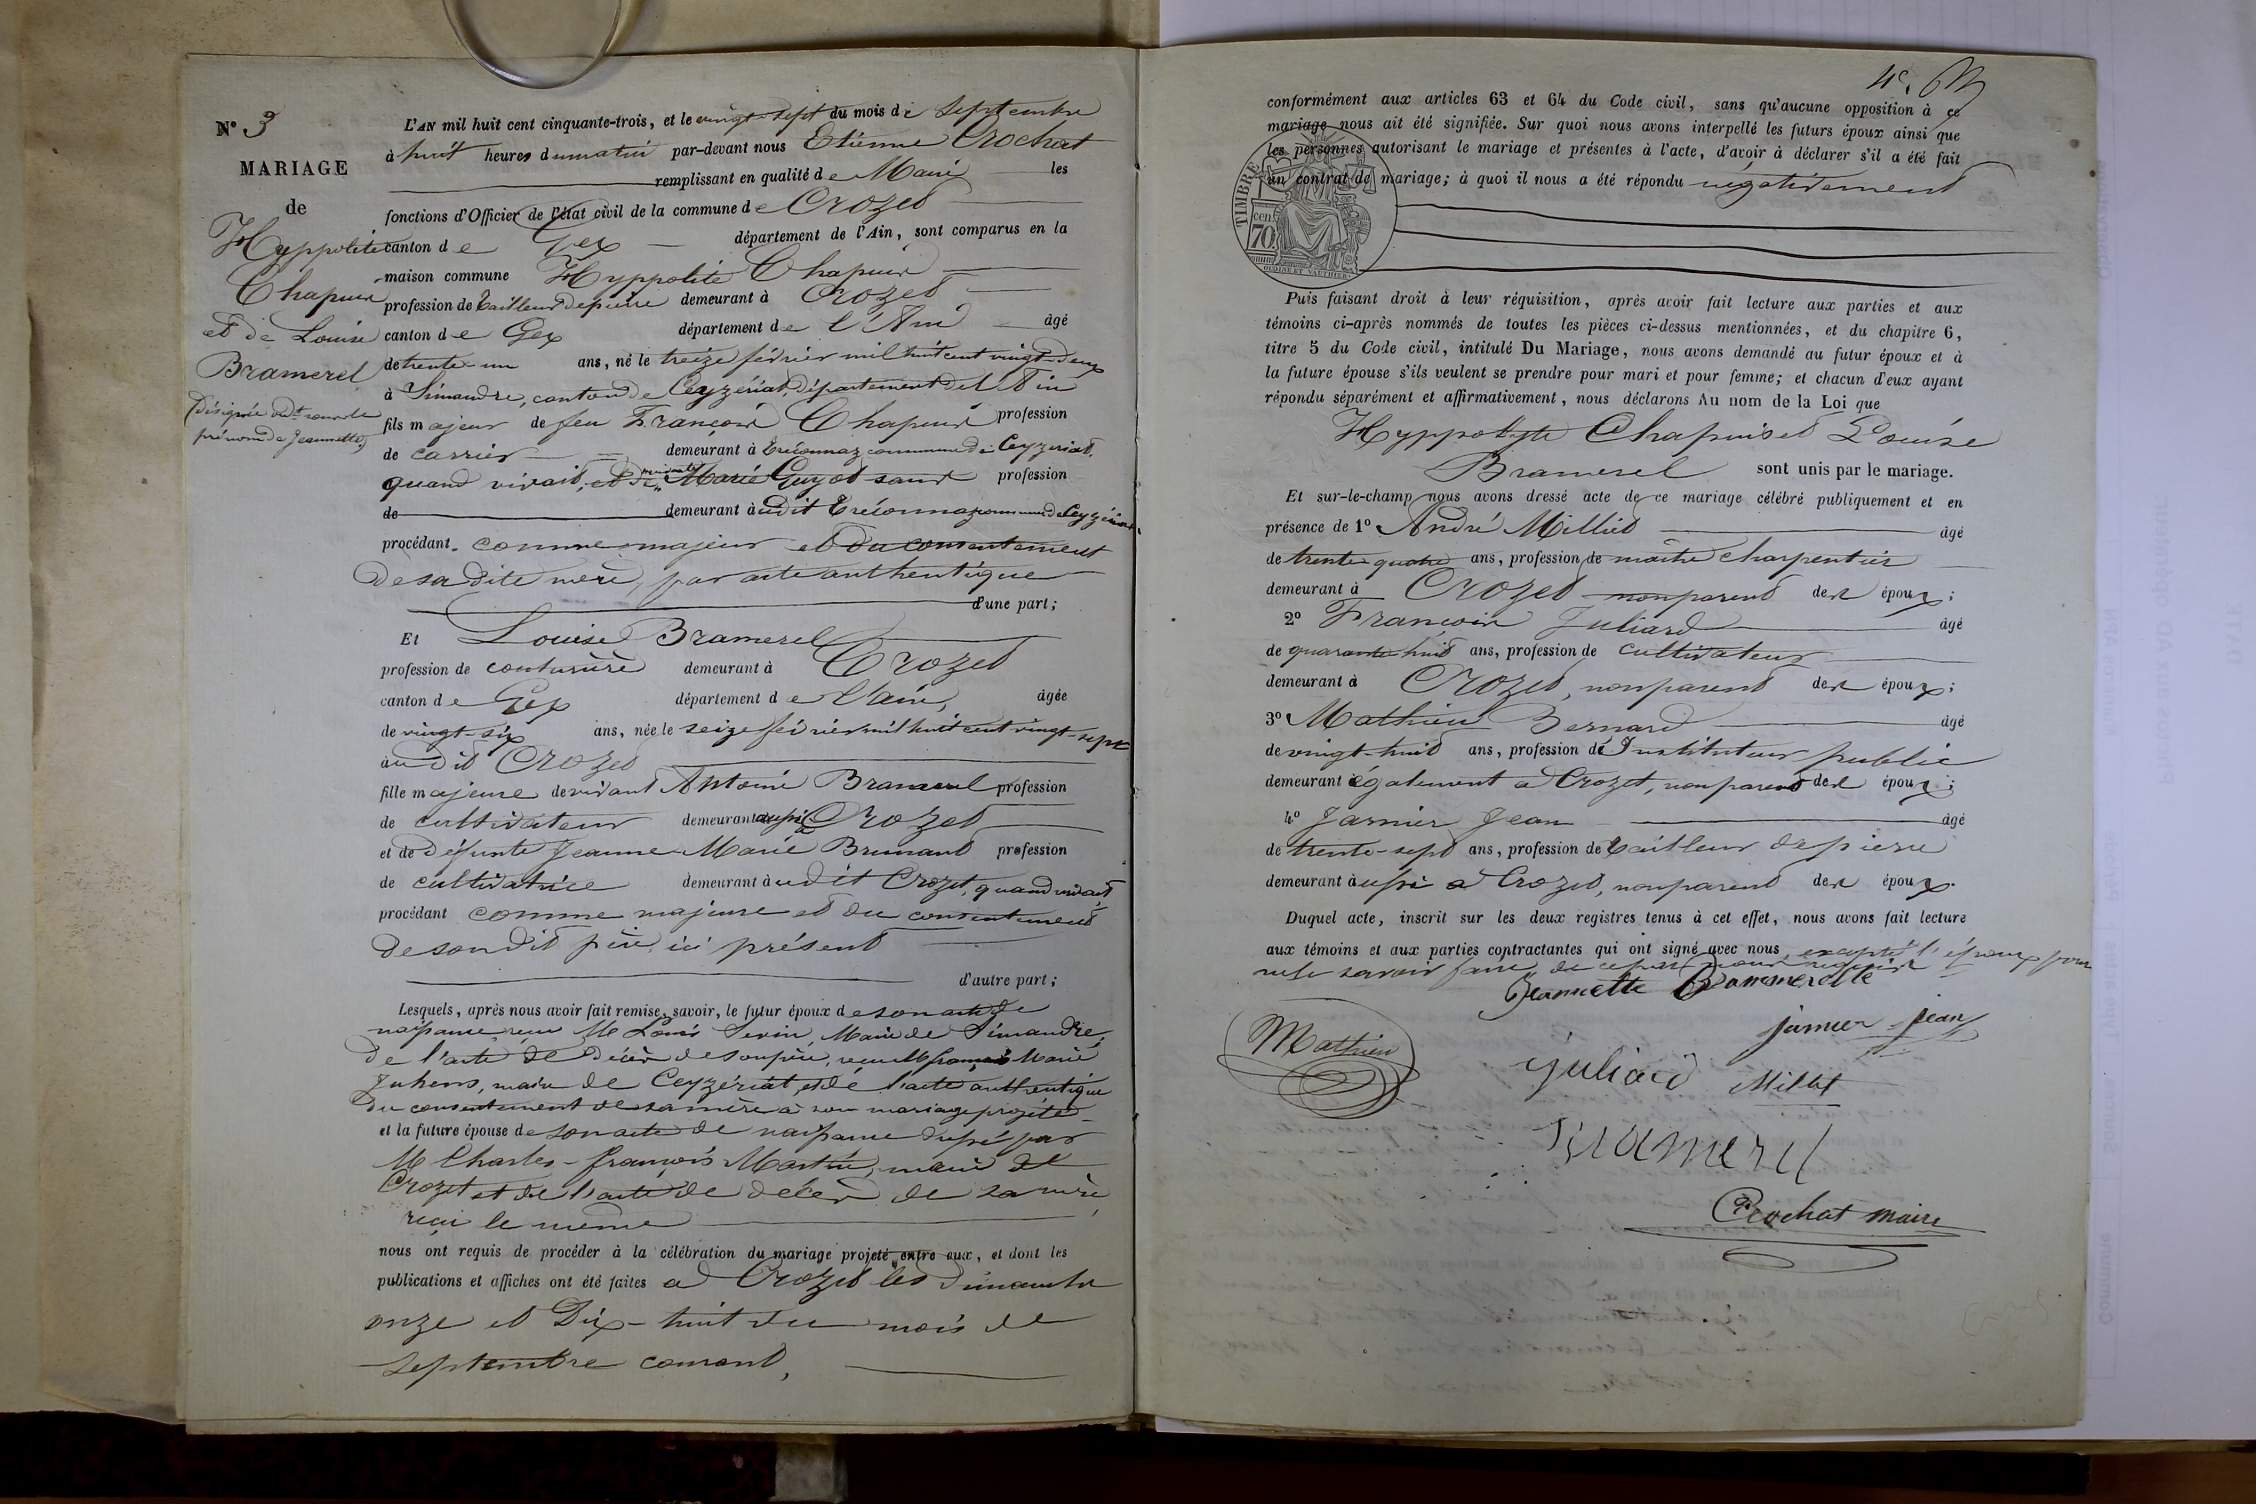 N° 3
MARIAGE
de
Hyppolite
Chapuis
et de Louise
Bramerel
(désignée audt sous le
prénom de Jeannette)
L'AN mil huit cent cinquante-trois, et le vingt-sept du mois de septembre
à huit heures du matin par-devant nous Etienne Crochat
remplissant en qualité de Maire les
fonctions d'Officier de l'état civil de la commune de Crozet
canton de Gex département de l'Ain, sont comparus en la
maison commune Hyppolite Chapuis
profession de tailleur de pierre demeurant à Crozet
canton de Gex département de l'Ain âgé
de trente-un ans, né le treize février mil huit cent vingt-deux
à Simandre, canton de Ceyzériat, département de l'Ain
fils majeur de feu François Chapuis profession
de carrier demeurant à Tréconnaz commune de Ceyzériat,
quand vivait, et de vivante Marie Guyot sans profession
de demeurant audit Tréconnaz commune de Ceyzériat
procédant comme majeur et du consentement
de sa dite mère, par acte authentique
d'une part;
Et Louise Bramerel
profession de couturière demeurant à Crozet
canton de Gex département de l'ain, âgée
de vingt-six ans, née le seize février mil huit cent vingt-sept
audit Crozet
fille majeure de vivant Antoine Bramerel profession
de cultivateur demeurant aussi à Crozet
et de défunte Jeanne-Marie Brunand profession
de cultivatrice demeurant audit Crozet, quand vivait,
procédant comme majeure et du consentement
de son dit père ici présent
d'autre part;
Lesquels, après nous avoir fait remise, savoir, le futur époux de son acte de
naissance reçu Mr Louis Sevin, Maire de Simandre,
de l'acte de décès de son père, reçu Mr françois Marie
Juhens, maire de Ceyzériat, et de l'acte authentique
du consentement de sa mère à son mariage projeté
et la future épouse de son acte de naissance dressé par
M Charles-françois Martin, maire de
Crozet et de l'acte de décès de sa mère,
reçu le même
nous ont requis de procéder à la célébration du mariage projeté entre eux, et dont les
publications et affiches ont été faites à Crozet les dimanche
onze et Dix-huit du mois de
septembre courant,
4e.
conformément aux articles 63 et 64 du Code civil, sans qu'aucune opposition à ce
mariage nous ait été signifiée. Sur quoi nous avons interpellé les futurs époux ainsi que
les personnes autorisant le mariage et présentes à l'acte, d'avoir à déclarer s'il a été fait
un contrat de mariage; à quoi il nous a été répondu négativement
TIMBRE
cen.
70
OUDINE ET VAUTHIER
Puis faisant droit à leur réquisition, après avoir fait lecture aux parties et aux
témoins ci-après nommés de toutes les pièces ci-dessus mentionnées, et du chapitre 6,
titre 5 du Code civil, intitulé Du Mariage, nous avons demandé au futur époux et à
la future épouse s'ils veulent se prendre pour mari et pour femme; et chacun d'eux ayant
répondu séparément et affirmativement, nous déclarons Au nom de la Loi que
Hyppolyte Chapuis et Louise
Bramerel sont unis par le mariage.
Et sur-le-champ nous avons dressé acte de ce mariage célébré publiquement et en
présence de 1° André Milliet âgé
de trente-quatre ans, profession de maître charpentier
demeurant à Crozet non parent des époux;
2° François Juliard âgé
de quarante-huit ans, profession de cultivateur
demeurant à Crozet, non parent des époux;
3° Mathieu Bernard âgé
de vingt-huit ans, profession d'Instituteur public
demeurant également à Crozet, non parent des époux;
4° Jarnier Jean âgé
de trente-sept ans, profession de tailleur de pierre
demeurant aussi à Crozet, non parent des époux.
Duquel acte, inscrit sur les deux registres tenus à cet effet, nous avons fait lecture
aux témoins et aux parties contractantes qui ont signé avec nous, excepté l'époux pour
ne le savoir faire, de ce par nous requis
Jeannette Brammerelle
Jarnier Jean
Mathieu
Juliard Millet
Bramerel
Crochat maire